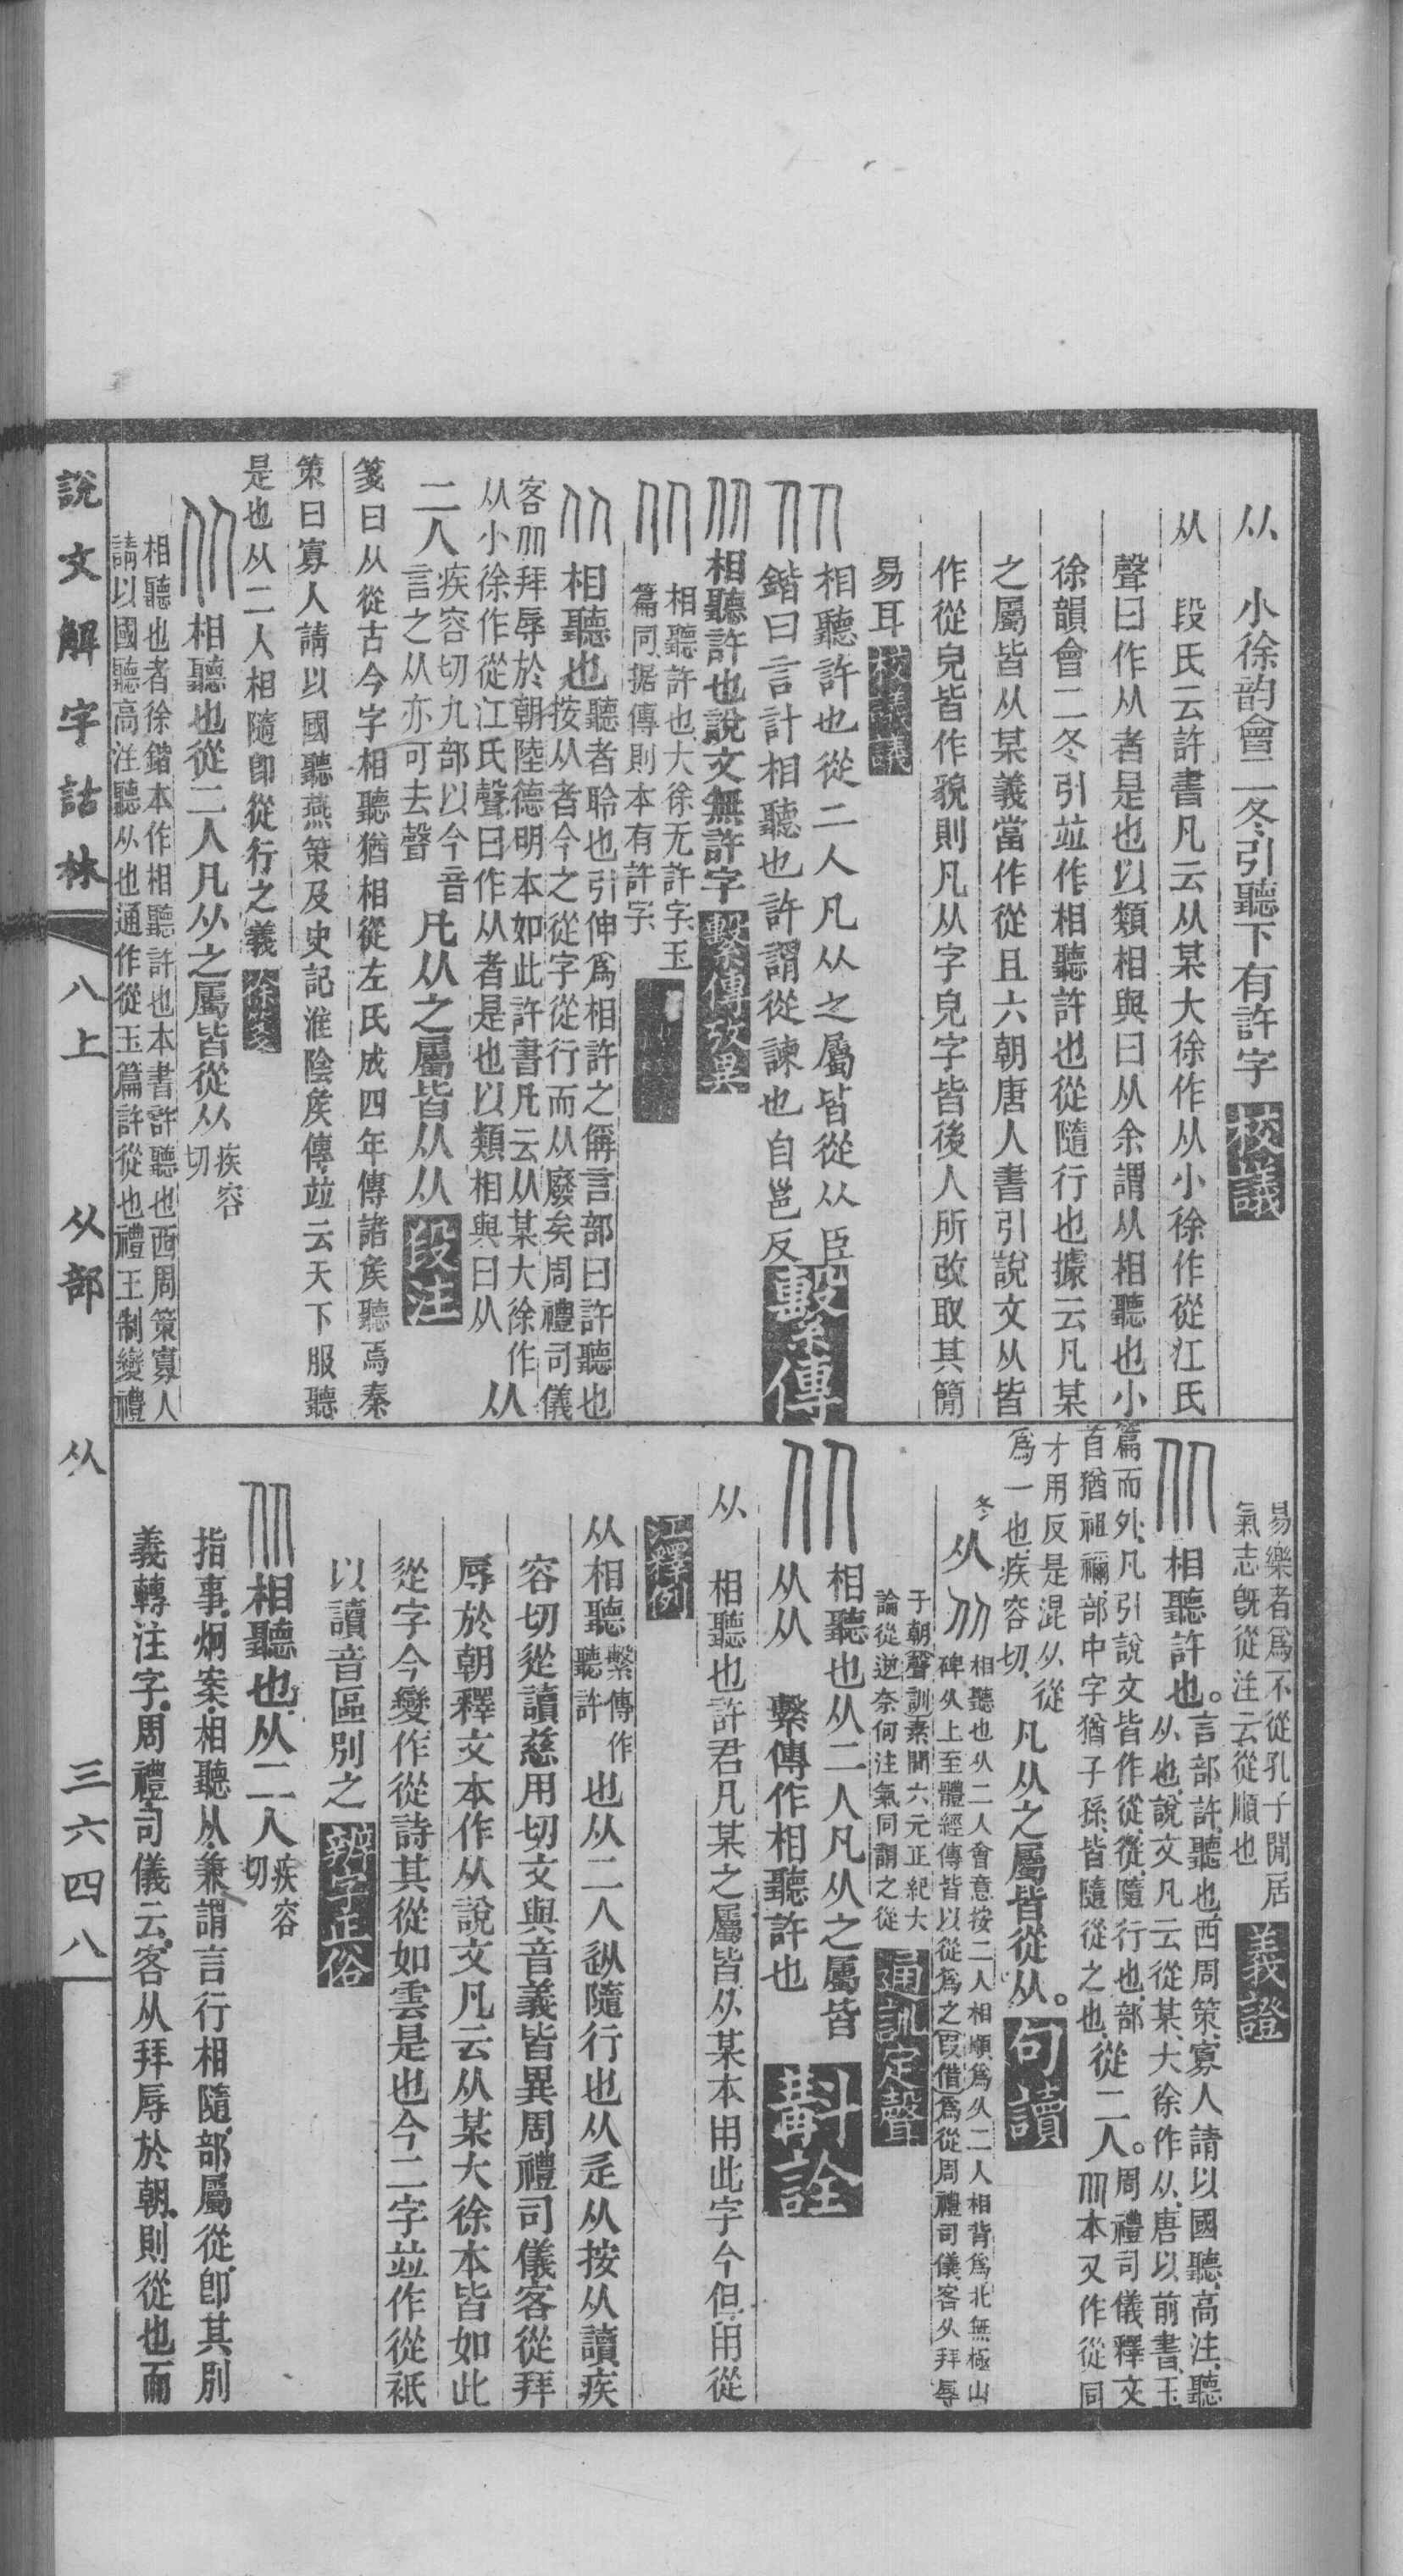 从　小徐韵會二冬引聽下有許字 校議
从　段氏云許書凡云从某大徐作从小徐作從江氏
聲曰作从者是也以類相與曰从余謂从相聽也小
徐韻會二冬引竝作相聽許也從隨行也據云凡某
之屬皆从某義當作從且六朝唐人書引說文从皆
作從皃皆作貌則凡从字皃字皆後人所改取其簡
易耳 校議議
从 相聽許也從二人凡从之屬皆從从臣
鍇曰言計相聽也許謂從諫也自邕反 繫傳
从 相聽許也說文無許字 繫傳攷異
从 相聽許也大徐无許字玉
篇同据傳則本有許字
从 相聽也 聽者聆也引伸爲相許之偁言部曰許聽也
按从者今之從字從行而从廢矣周禮司儀
客从拜辱於朝陸德明本如此許書凡云从某大徐作
从小徐作從江氏聲曰作从者是也以類相與曰从 从
二人 疾容切九部以今音
言之从亦可去聲 凡从之屬皆从从 段注
箋曰从從古今字相聽猶相從左氏成四年傳諸矦聽焉秦
策曰寡人請以國聽燕策及史記淮陰矦傳竝云天下服聽
是也从二人相隨卽從行之義 徐箋
从 相聽也從二人凡从之屬皆從从 疾容
切
相聽也者徐鍇本作相聽許也本書許聽也西周策寡人
請以國聽高注聽从也通作從玉篇許從也禮王制變禮
易樂者爲不從孔子閒居
氣志旣從注云從順也 義證
从 相聽許也。言部許聽也西周策寡人請以國聽高注聽
从也說文凡云從某大徐作从唐以前書玉
篇而外凡引說文皆作從從隨行也部
首猶祖禰部中字猶子孫皆隨從之也 從二人。周禮司儀釋文
从本又作從同
才用反是混从從
爲一也疾容切 凡从之屬皆從从。 句讀
冬 从 从 相聽也从二人會意按二人相順爲从二人相背爲北無極山
碑从上至體經傳皆以從爲之叚借爲從周禮司儀客从拜辱
于朝聲訓素問六元正紀大
論從逆奈何注氣同謂之從 通訓定聲
从 相聽也从二人凡从之屬皆
从从　繫傳作相聽許也 斠詮
从　相聽也許君凡某之屬皆从某本用此字今但用從
江釋例
从相聽 繫傳作
聽許 也从二人𨑢隨行也从辵从按从讀疾
容切從讀慈用切文與音義皆異周禮司儀客從拜
辱於朝釋文本作从說文凡云从某大徐本皆如此
從字今變作從詩其從如雲是也今二字竝作從祇
以讀音區別之 辨字正俗
从 相聽也从二人 疾容
切
指事炯案相聽从兼謂言行相隨部屬從卽其別
義轉注字周禮司儀云客从拜辱於朝則從也而
說文解字詁林 八上　从部　从　三六四八